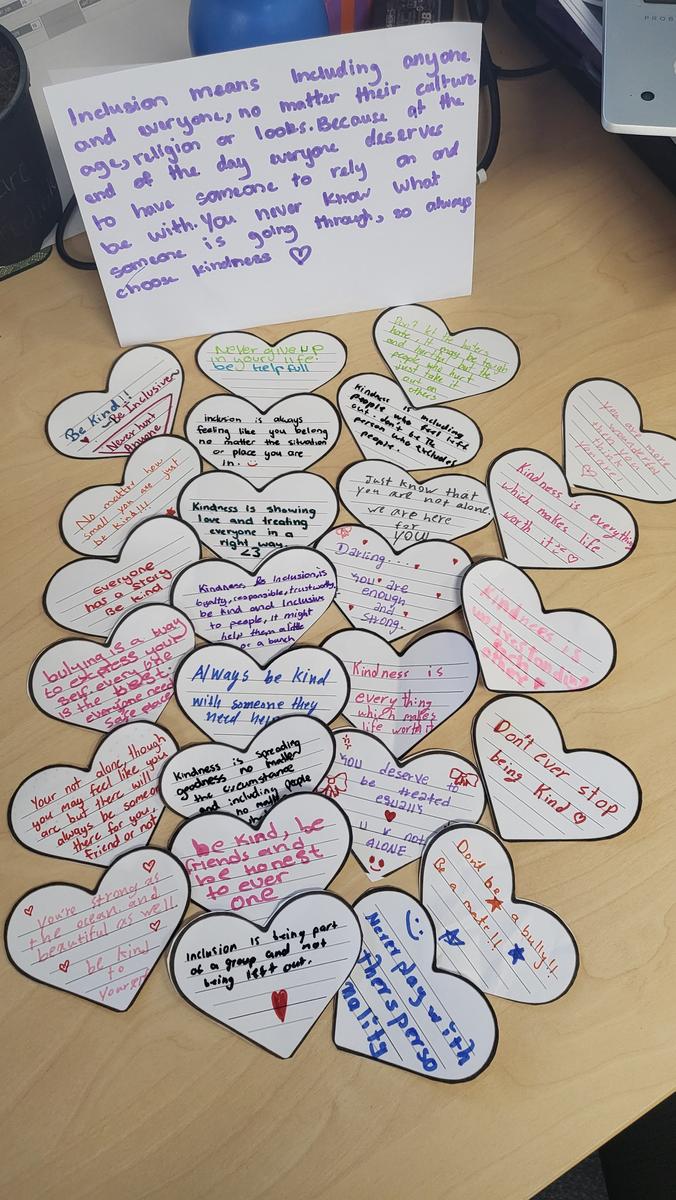 Inclusion means Including anyone
and everyone, no matter their culture
age, religion or looks. Because at the
end of the day everyone deserves
to have someone to rely on and
be with. You never know what
someone is going through, so always
choose kindness
Never give up
in your life!
be helpfull
Don't let the haters
hate, it may be tough
and hurtful but the
people who hurt
just take it
out on
others
Be Kind!!
Be Inclusive
Never hurt
Anyone
inclusion is always
feeling like you belong
no matter the situation
or place you are
in.
Kindness is including
people who feel left
out. don't be the
person who excludes
people.
you are more
wonderful
then you
think
No matter how
small you are just
be kind!!!
Kindness is showing
love and treating
everyone in a
right way.
<3
Just know that
you are not alone.
we are here
for
you!
Kindness is everything
which makes life
worth it
Everyone
has a story
Be kind
Kindness & Inclusion, is
loyalty, responsible, trustworthy,
be kind and Inclusive
to people, it might
help them a little
or a bunch
Darling....
you are
enough
and
strong.
Kindness is
understanding
each
other
bulying is a way
to express your
self. every one
is the best.
everyone need
safe place
Always be kind
with someone they
need help
Kindness is
everything
which makes
life worth it
Your not alone, though
you may feel like you
are but there will
always be someone
there for you,
friend or not
Kindness is spreading
goodness no matter
the circumstance
and including people
no matter
YOU deserve to
be treated
equally
U R not
ALONE
Don't ever stop
being Kind
be kind, be
friends and
be honest
to ever
one
you're strong as
the ocean, and
beautiful as well.
be kind
to
yourself
Dont be a bully!!
Be a mate!!
Inclusion is being part
of a group and not
being left out.
Never play with
thers perso
nality